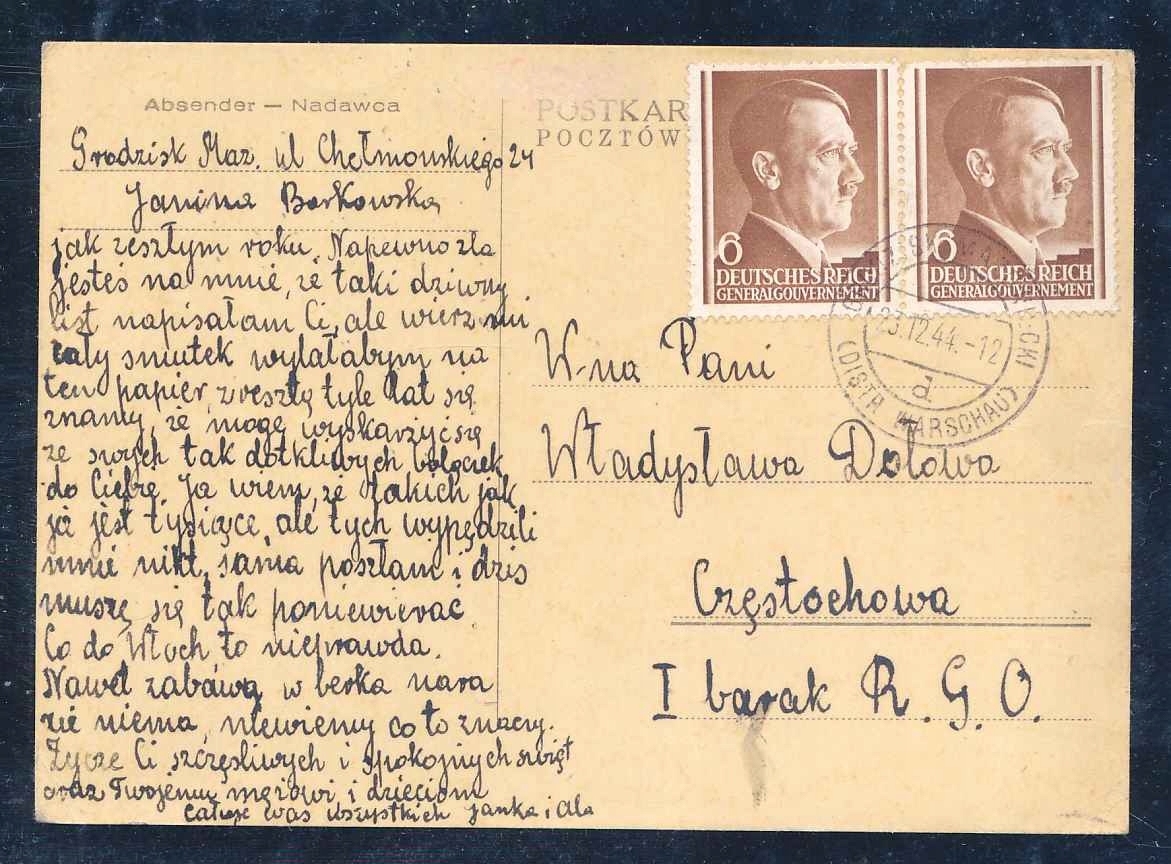 Absender — Nadawca
Grodzisk Maz. ul Chełmońskiego 24
Janina Borkowska
jak zeszłym roku. Napewno zła
jesteś na mnie, że taki dziwny
list napisałam Ci, ale wierz mi
cały smutek wylałabym na
ten papier, zresztą tyle lat się
znamy, że mogę wyskarżyć się
ze swych tak dotkliwych bolączek
do Ciebie. Ja wiem, że takich jak
ja jest tysiące, ale tych wypędzili
mnie nikt, sama poszłam i dziś
muszę się tak poniewierać
Co do Włoch to nieprawda.
Nawet zabawa w berka nara
zie niema, niewiemy co to znaczy.
Życzę Ci szczęśliwych i spokojnych świąt
oraz Twojemu mężowi i dzieciom
Całuję was wszystkich Janka i Ala
POSTKAR
POCZTÓW
6
DEUTSCHES REICH
GENERALGOUVERNEMENT
6
DEUTSCHES REICH
GENERALGOUVERNEMENT
23.12.44.-12
d
(DISTR. WARSCHAU)
W-na Pani
Władysława Dolowa
Częstochowa
I barak R. G. O.